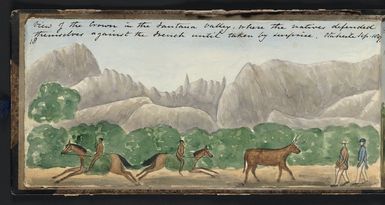 View of the Crown in the Fautaua Valley, where the natives defended
themselves against the French until taken by surprise.